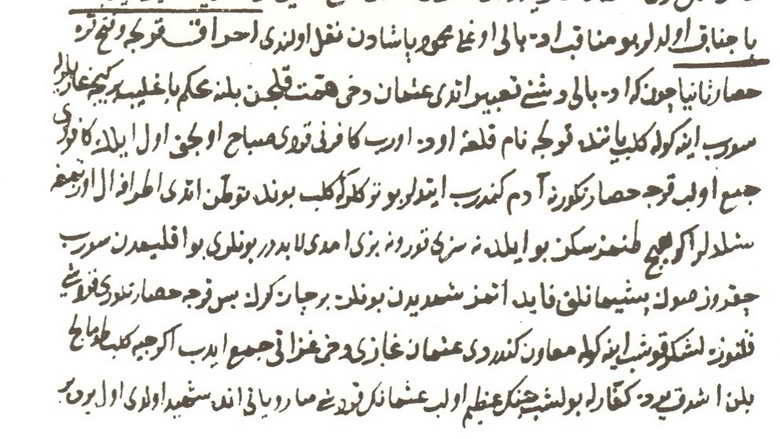 باجناق اولدیلر بو مناقب اده بالی اوغلی محمود پاشادن نقل اولندی احراق قولجه و فتح قره
حصار ثانیا چون که اده بالی دوشی تعبیر اتدی عثمان دخی همت قلیجن بلنه محکم باغلیب بر کیجه غازیلرله
سورب اینه کوله کلب یاننده قولجه نام قلعه اوده اورب کافرنی قردی صباح اولجق اول ایلك کافری
جمع اولب قرجه حصار تکورنه آدم کندرب ایتدیلر بو ترکلر کلب بونده توطن اتدی اطرافه ال اوزتمغه
بشلدلر اکر هیج طنمز سکز بو ایلده نه سزی قور و نه بزی امدی لابددر بونلری بو اقلیمدن سورب
چقروز صوك پشیمانلق فایده اتمز شمدیدن بونلره بر چاره کرك پس قرجه حصار تکوری قرنداشی
قلنوزه لشکر قوشب اینه کوله معاون کندردی عثمان غازی دخی غزاتی جمع ایدب اکرجیه کلب طومالج
بلن اشدقی یرده کفارله بولشب جنك عظیم اولب عثمانك قرنداشی صارو یاتی انده شهید اولدی اول یره بر